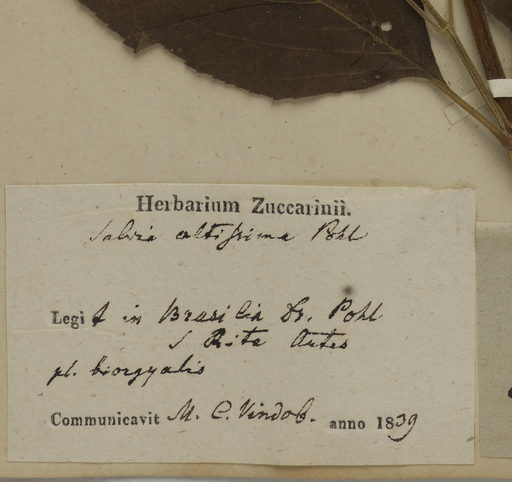 Herbarium Zuccarinii.
Salvia altissima Pohl
Legit in Brasilia Dr. Pohl
S Rita Antes
pl. biorgyalis
Communicavit M. C. Vindob. anno 1839